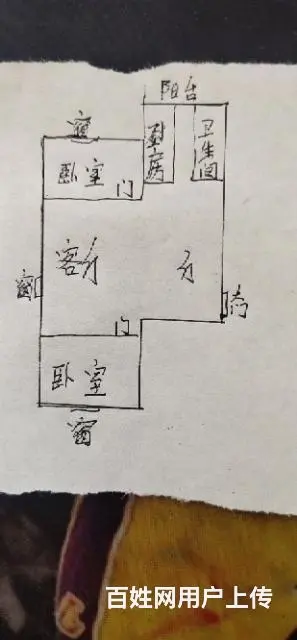 阳台
窗
厨房
卫生间
卧室
门
客厅
厅
窗
门
卧室
窗
百姓网用户上传